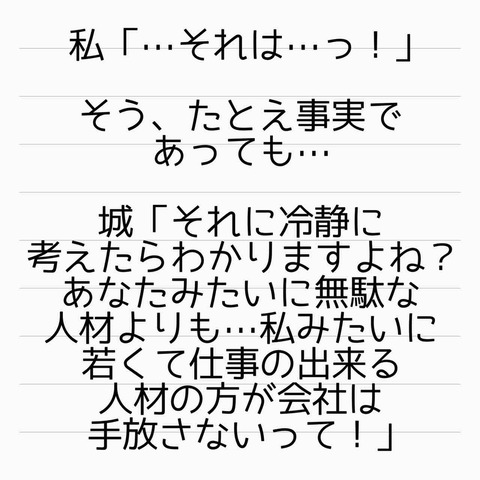 私「…それは…っ！」
そう、たとえ事実で
あっても…
城「それに冷静に
考えたらわかりますよね？
あなたみたいに無駄な
人材よりも…私みたいに
若くて仕事の出来る
人材の方が会社は
手放さないって！」